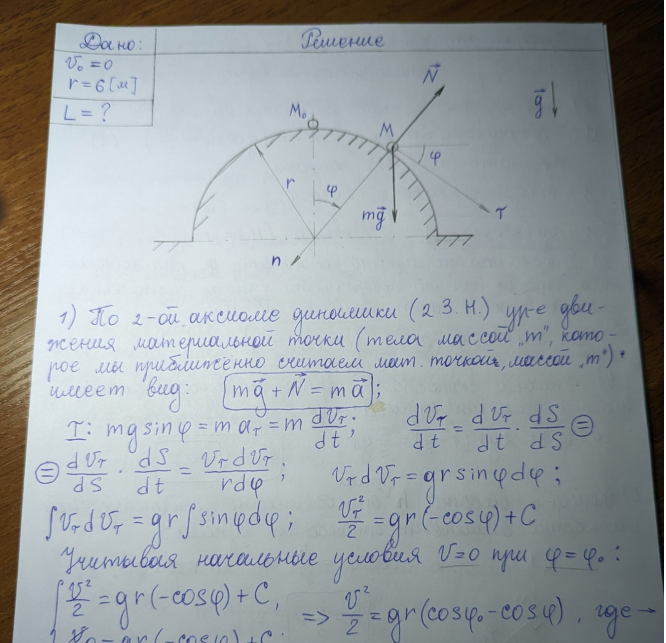 Дано:
Решение
v₀ = 0
r = 6 [м]
L = ?
N⃗
g⃗
M₀
M
φ
r
φ
mg⃗
τ
n
1) По 2-ой аксиоме динамики (2 З.Н.) ур-е дви-
жения материальной точки (тела массой „m", кото-
рое мы приближённо считаем мат. точкой, массой „m")
имеет вид: mg⃗ + N⃗ = ma⃗ ;
τ: mg sinφ = m a_τ = m dv_τ/dt ; dv_τ/dt = dv_τ/dt · dS/dS =
= dv_τ/dS · dS/dt = v_τ dv_τ/rdφ ; v_τ dv_τ = gr sinφ dφ ;
∫v_τ dv_τ = gr ∫sinφ dφ ; v_τ²/2 = gr(-cosφ) + C
Учитывая начальные условия v=0 при φ=φ₀ :
{ v²/2 = gr(-cosφ) + C, => v²/2 = gr(cosφ₀ - cosφ) , где →